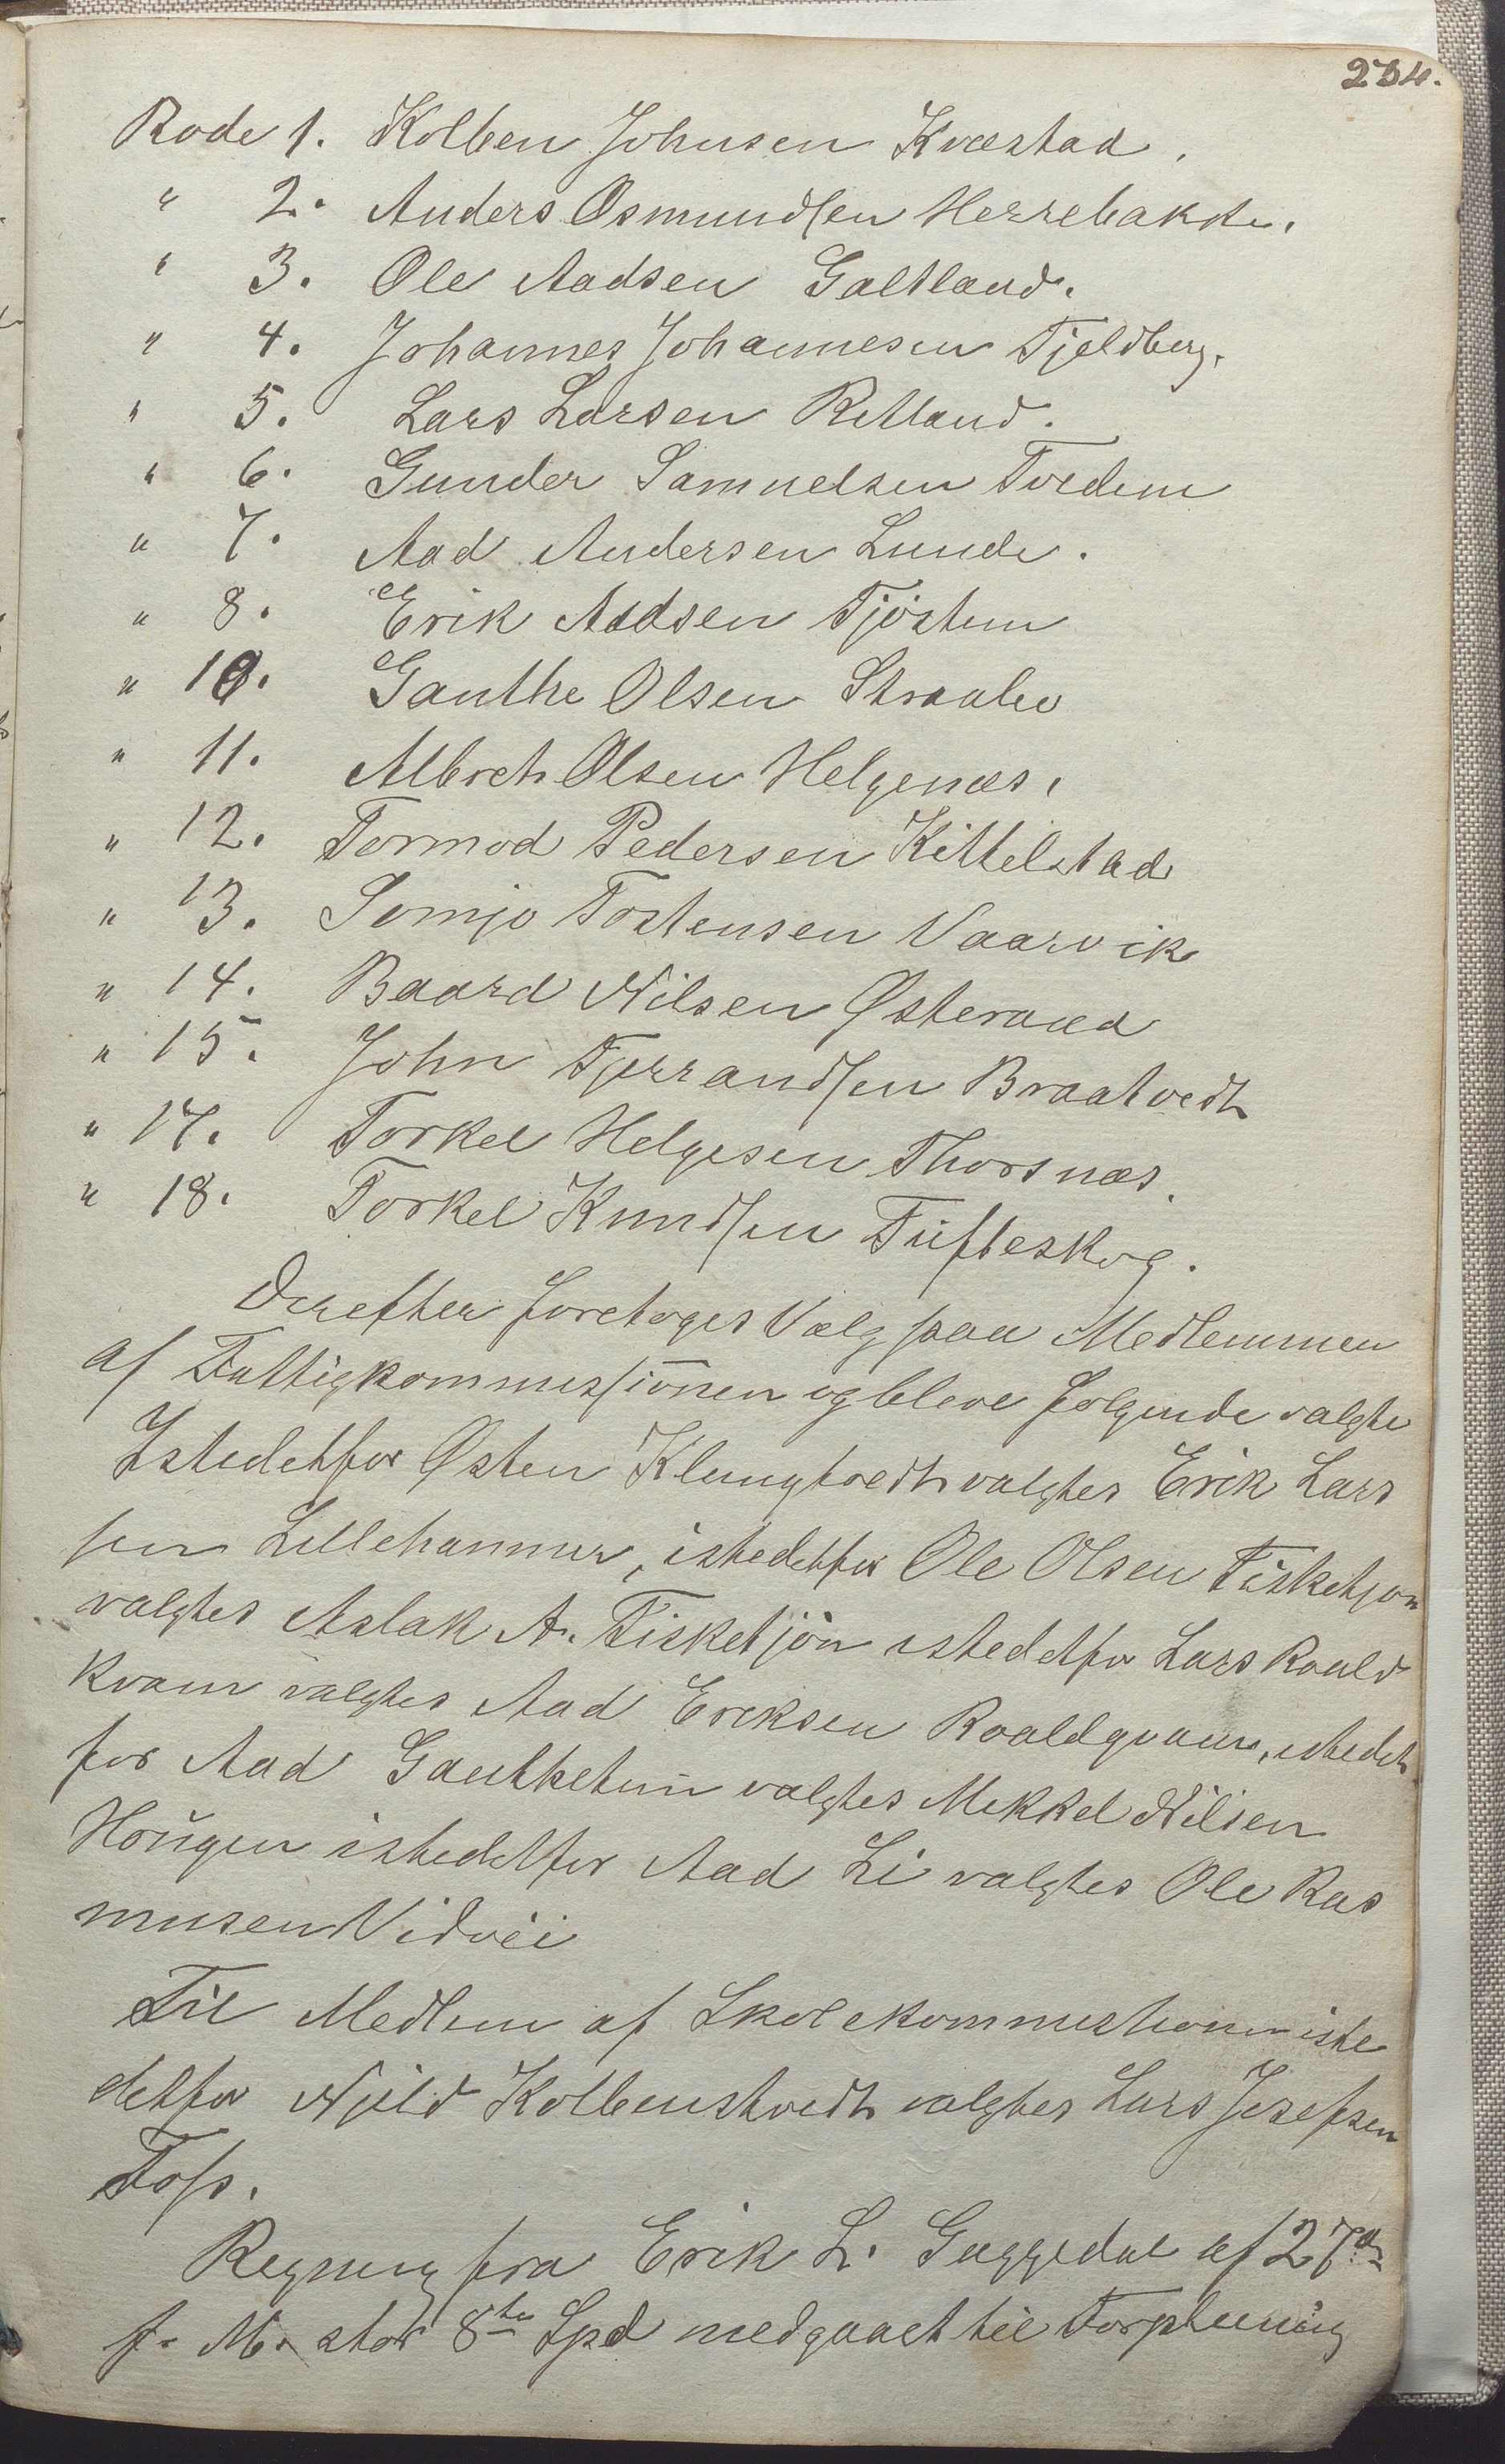 234.
Rode 1. Kolben Johnsen Kvæstad.
" 2. Anders Osmundsen Herrebakke.
" 3. Ole Aadsen Galtland.
" 4. Johannes Johannesen Fjeldberg.
" 5. Lars Larsen Retland.
" 6. Gunder Samuelsen Tvedem
" 7. Aad Andersen Lunde.
" 8. Erik Aadsen Tjöstem
" 10. Gauthe Olsen Straabø
" 11. Albreth Olsen Helgenæs.
" 12. Tormod Pedersen Kittelstad
" 13. Somjo Tostensen Vaarvik
" 14. Baard Nilsen Østeraad
" 15. John Tjerrandsen Braatvedt
" 17. Torkel Helgesen Thorsnæs.
" 18. Torkel Knudsen Tufteskog.
Derefter foretoges Valg paa Medlemmer
af Fattigkommissionen og bleve følgende valgte
Istedetfor Østen Klungtvedt valgtes Erik Lars
sen Lillehammer, istedetfor Ole Olsen Fisketjøn
valgtes Aslak A. Fisketjön istedetfor Lars Roald
kvam valgtes Aad Eriksen Roaldqvam, istedet
for Aad Gautketun valgtes Mikkel Nilsen
Hougen istedetfor Aad Li valgtes Ole Ras
musen Vidvei
Til Medlem af Skolekommistionen iste
detfor Njeld Kolbenstvedt valgtes Lars Josefsen
Foss.
Regning fra Erik L. Guggedal af 27de
f. M. stor 8te Spd medgaaet til Forpleining